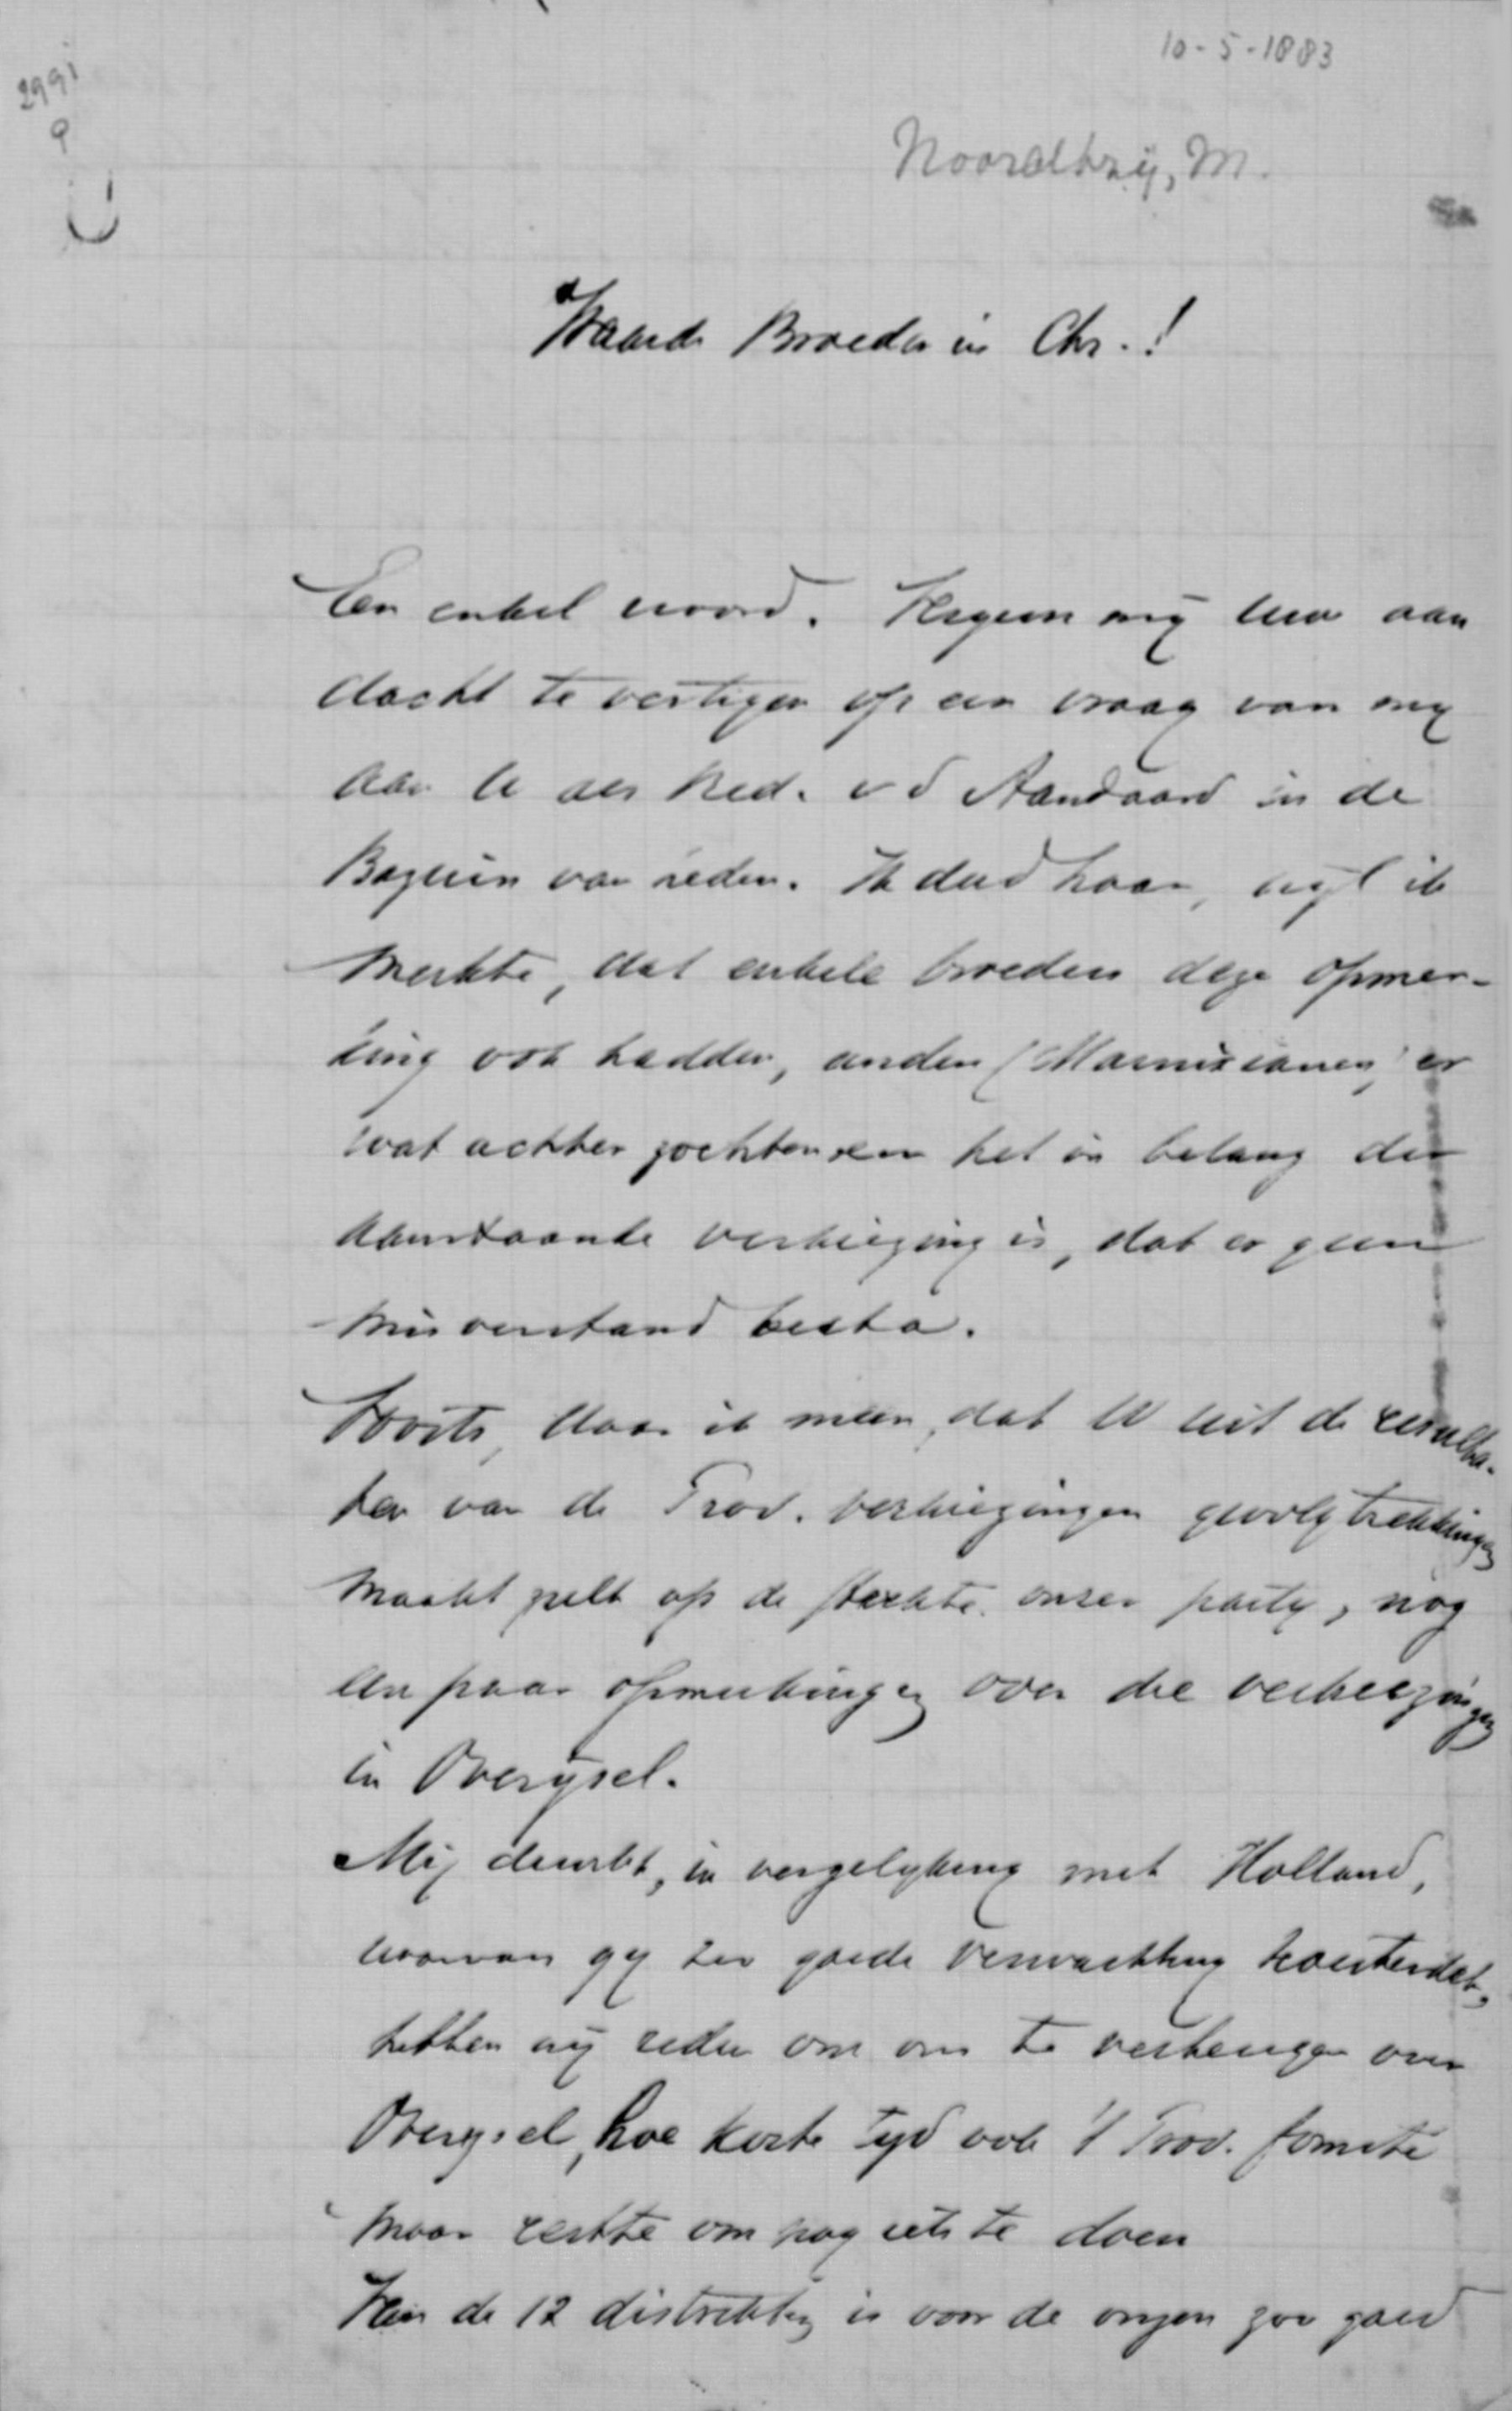 10-5-1883
2991
9
Noordtzij, M.
Waarde Broeder in Chr.!
Een enkel woord. Vergun mij uw aan
dacht te vestigen op een vraag van mij
aan U als Red. v d Standaard in de
Bazuin van heden. Ik deed haar, wijl ik
merkte, dat enkele broeders deze opmer-
king ook hadden, andere (Marnixianen) er
wat achter zochten en het in belang der
aanstaande verkiezing is, dat er geen
misverstand besta.
Voorts, daar ik meen, dat U uit de resulta-
ten van de Prov. verkiezingen gevolgtrekkingen
maakt zelt op de sterkte onzer partij, nog
een paar opmerkingen over die verkiezingen
in Overijsel.
Mij dunkt, in vergelyking met Holland,
waarvan gij zen goede verwachting koesterdet,
hebben wij reden om ons te verheugen over
Overysel, hoe korte tijd ook 't Prov. Comité
maar restte om nog iets te doen
Van de 12 distrikten is voor de onzen zoo goed